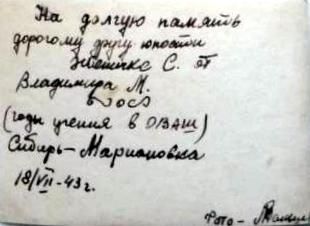 На долгую память
дорогому другу юности
С. от
Владимира М.
(годы учения в ОВАШ)
Сибирь-Марионовка
18/VII-43г.
Фото-